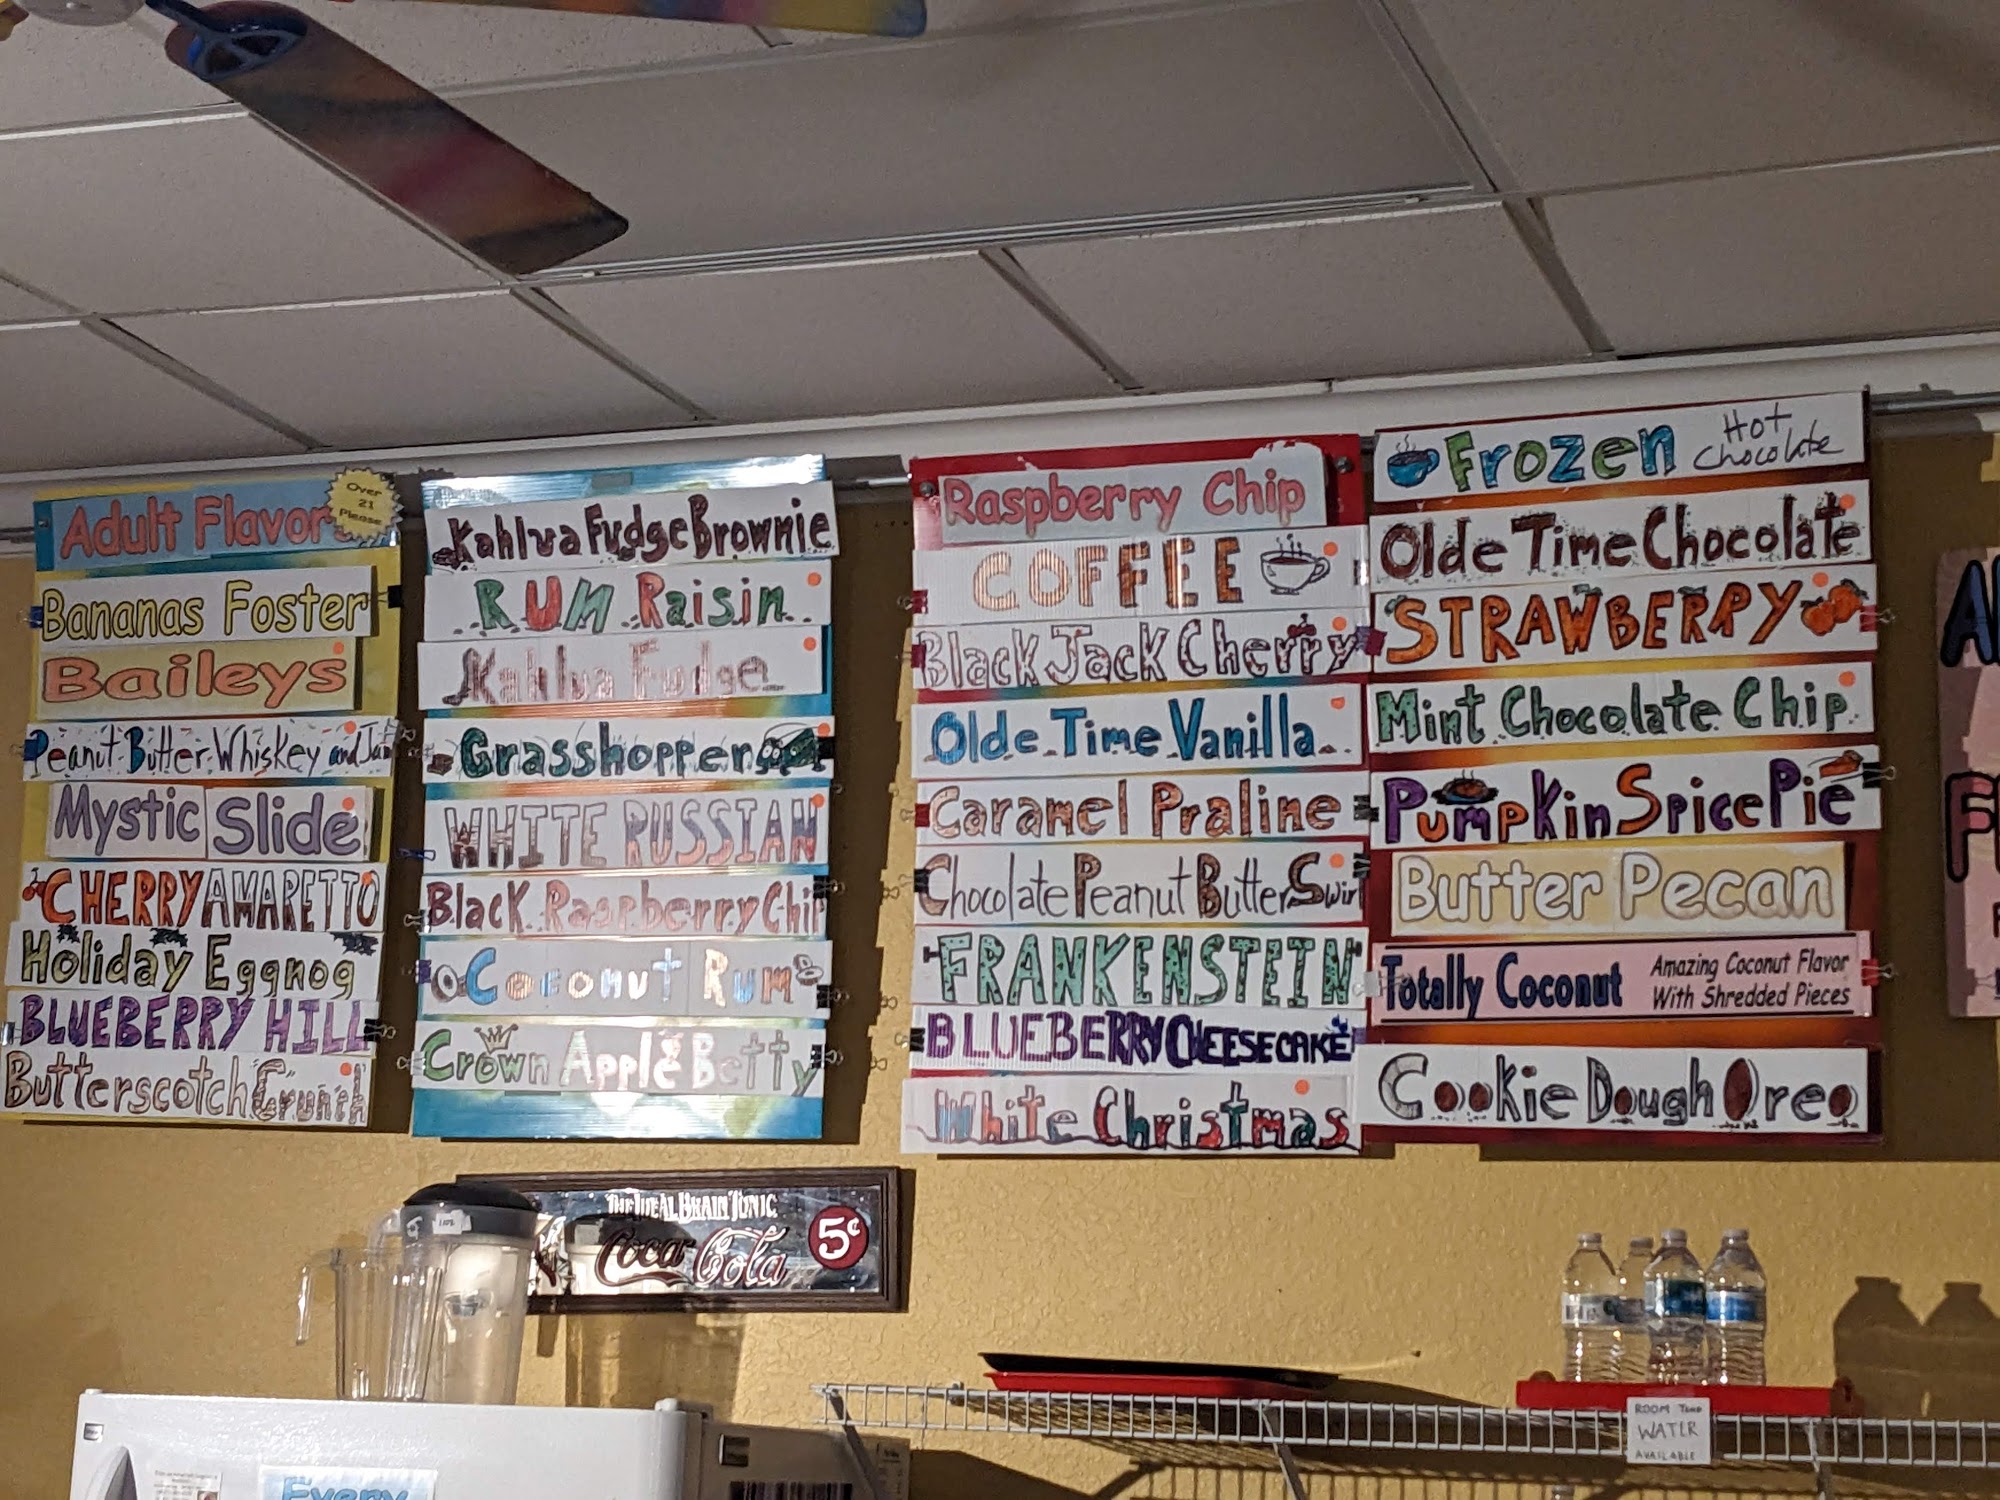 Adult Flavors
Over
21
Please
Bananas Foster
Baileys
Peanut Butter Whiskey and Jam
Mystic Slide
CHERRY AMARETTO
Holiday Eggnog
BLUEBERRY HILL
Butterscotch Crunch
Kahlua Fudge Brownie
RUM Raisin
Kahlua Fudge
Grasshopper
WHITE RUSSIAN
Black Raspberry Chip
Coconut Rum
Crown Apple Betty
Raspberry Chip
COFFEE
Black Jack Cherry
Olde Time Vanilla
Caramel Praline
Chocolate Peanut Butter Swirl
FRANKENSTEIN
BLUEBERRY CHEESECAKE
White Christmas
Frozen Hot Chocolate
Olde Time Chocolate
STRAWBERRY
Mint Chocolate Chip
Pumpkin Spice Pie
Butter Pecan
Totally Coconut
Amazing Coconut Flavor
With Shredded Pieces
Cookie Dough Oreo
THE IDEAL BRAIN TONIC
Coca Cola
5¢
ROOM TEMP
WATER
AVAILABLE
Every